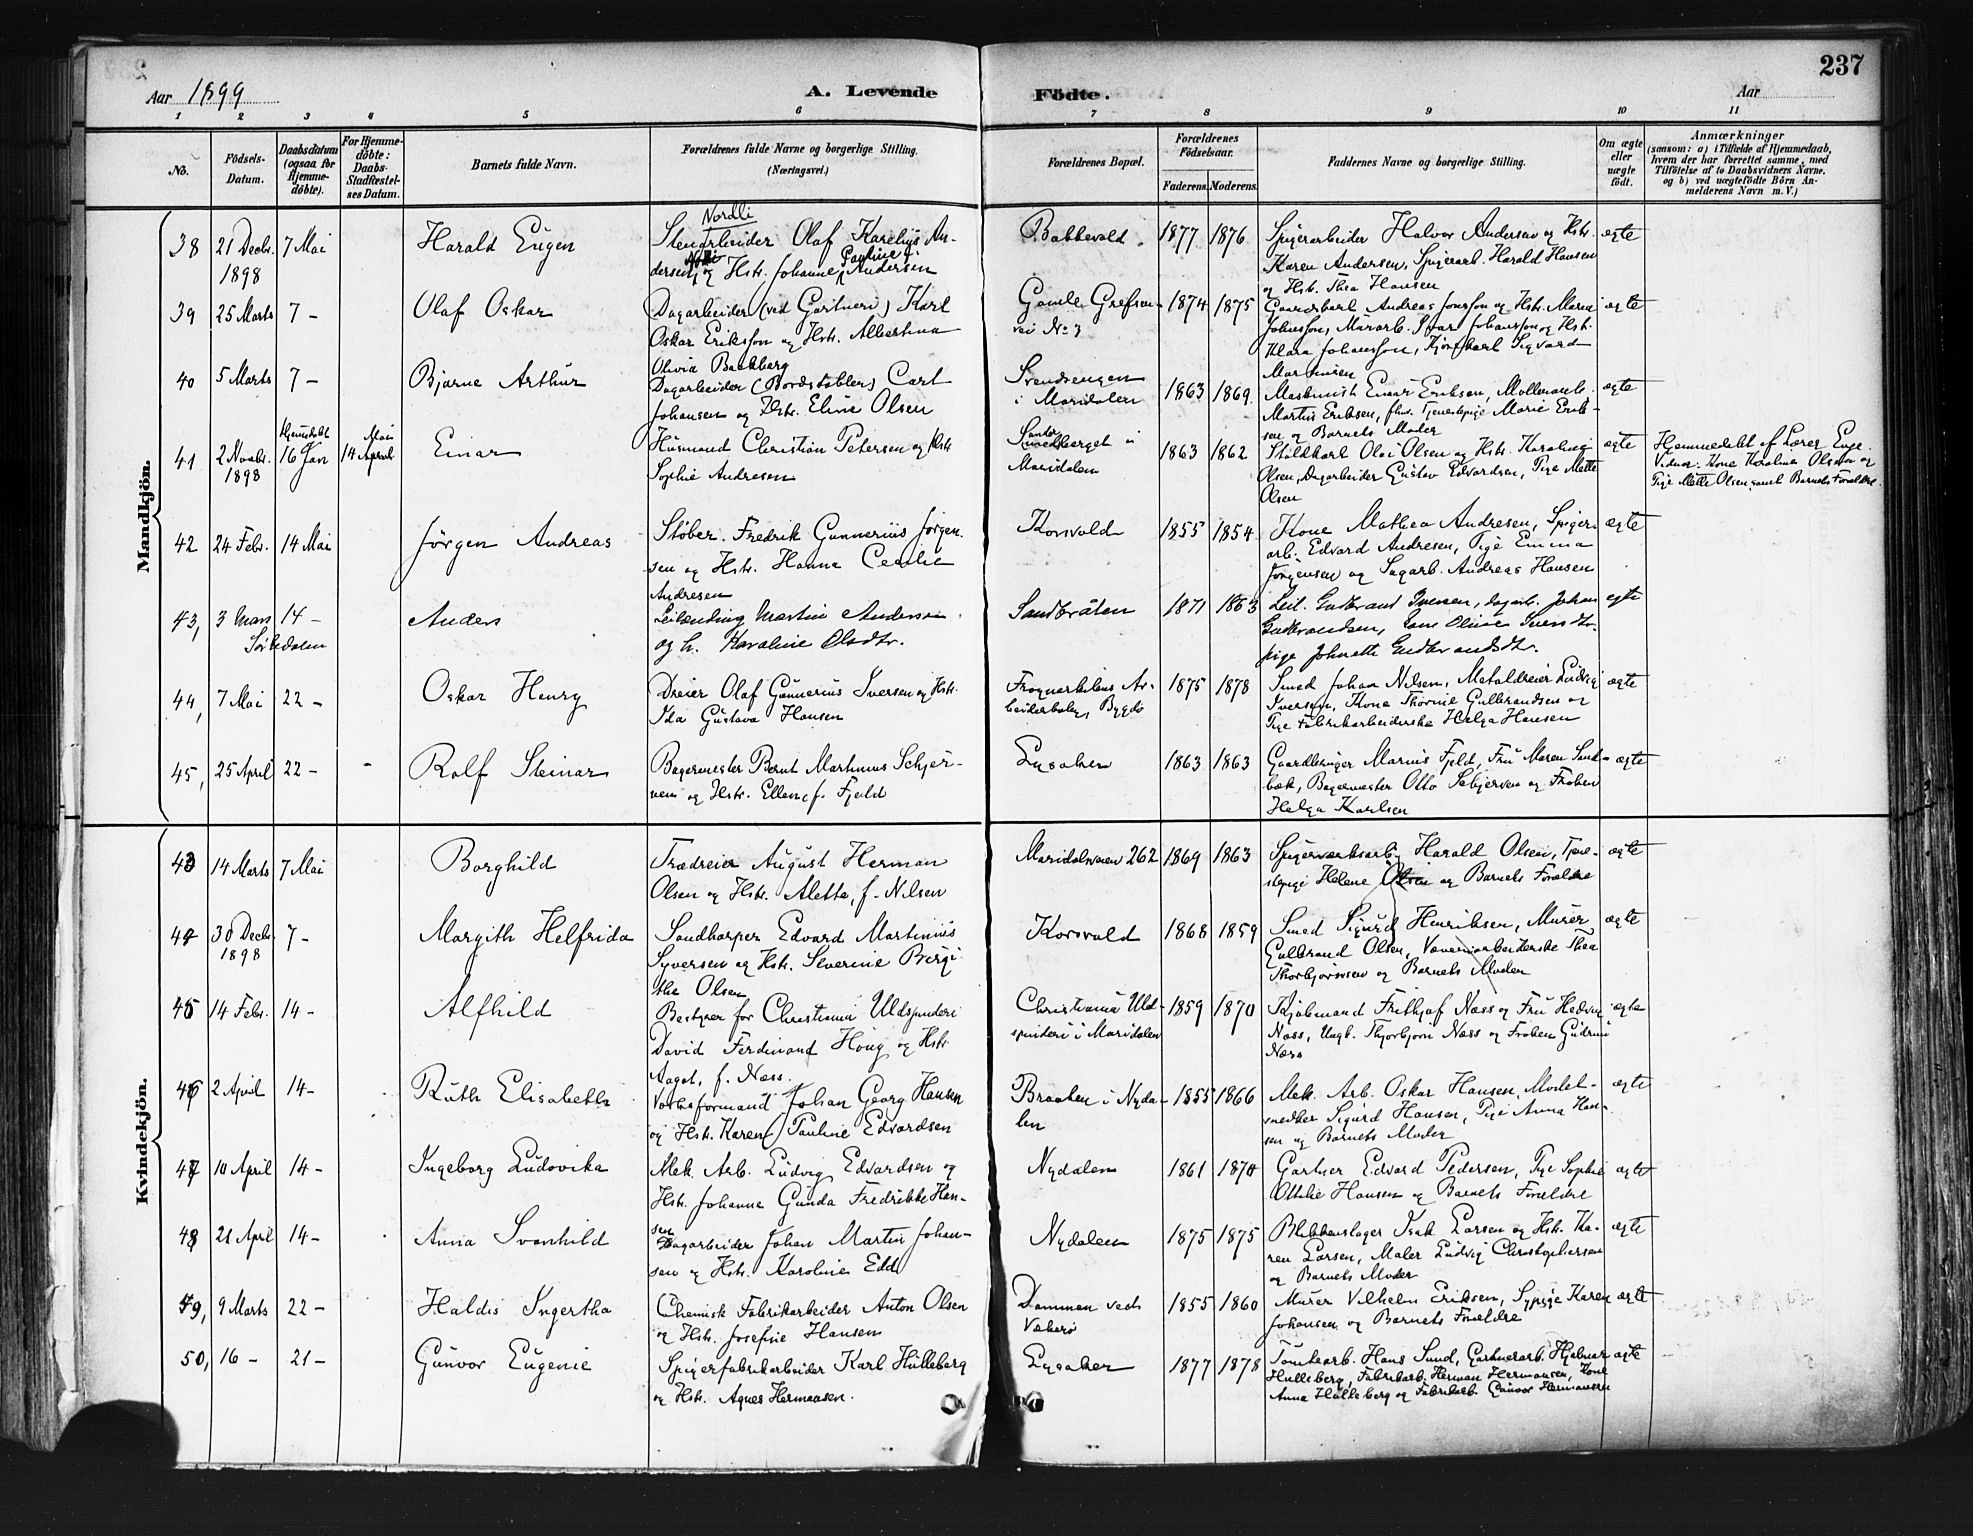 Aar 1899
A. Levende
Födte.
237
Aar
1 2 3 4 5 6 7 8 9 10 11
No.
Födsels-Datum.
Daabsdatum (ogsaa for Hjemmedöbte).
For Hjemmedöbte: Daabs-Stadfæstelses Datum.
Barnets fulde Navn.
Forældrenes fulde Navne og borgerlige Stilling.
(Næringsvei.)
Forældrenes Bopæl.
Forældrenes Födselsaar.
Faderens. Moderens.
Faddernes Navne og borgerlige Stilling.
Om ægte eller uægte födt.
Anmærkninger
(saasom: a) i Tilfælde af Hjemmedaab, hvem der har forrettet samme, med Tilföielse af to Daabsvidners Navne. og b) ved uægtefödte Börn Anmelderens Navn m. V.)
Mandkjön.
38 21 Decbr. 1898 7 Mai Harald Eugen
Nordli
Stenarbeider Olaf Karelius An-
dersen og Hstr. Johanne Pauline f. Andersen
Bakkevold 1877 1876
Spigerarbeider Halvor Andersen og Hstr.
Karen Andersen, Spigerarb. Harald Hansen
og Hstr. Thea Hansen
ægte
39 25 Marts 7 - Olaf Oskar
Dagarbeider (ved Gartneri) Karl
Oskar Eriksson og Hstr. Albertina
Olivia Backberg
Gamle Grefsen-
vei No 3
1874 1875
Gaardskarl Andreas Jonsson og Hstr. Maria
Johnsson, Murarb. Ivar Johansson og Hstr.
Klara Johansson, Kjørekarl Sigvard
Marthisen
ægte
40 5 Marts 7 - Bjarne Arthur
Dagarbeider (Bordstabler) Carl
Johansen og Hstr. Eline Olsen
Svendsengen
i Maridalen
1863 1869
Maskinist Einar Eriksen, Møllerarb.
Martin Eriksen, fhv. Tjenestepige Marie Erik-
sen og Barnets Moder
ægte
41 2 Novbr. 1898 Hjemdøbt 16 Jan 14 Mai Einar
Husmand Christian Petersen og Hstr
Sophie Andresen
Sanderberget i
Maridalen
1863 1862
Skildkarl Olai Olsen og Hstr. Karoline
Olsen, Dagarbeider Gustav Edvardsen, Pige Mette
Olsen
ægte
Hjemmedøbt af Lærer Enge.
Vidner: Kone Karoline Olsen og
Pige Mette Olsen, samt Barnets Forældre.
42 24 Febr. 14 Mai Jörgen Andreas
Støber Fredrik Gunnerius Jørgen-
sen og Hstr. Hanna Cecilie
Andresen
Korsvold 1855 1854
Kone Mathea Andresen, Spiger-
arb. Edvard Andresen, Pige Emma
Jørgensen og Sagarb. Andreas Hansen
ægte
43, 3 Mars 14 - Anders
Sörkedalen
Leilending Martin Andersen
og h. Karoline Olsdtr.
Sandbråten 1871 1863
Leil. Gudbrand Iversen, dagarb. Johan
Gudbrandsen, Kone Oline Svendtr.
pige Johnette Gudbrandsdtr.
egte
44, 7 Mai 22 - Oskar Henry
Dreier Olaf Gunnerius Iversen og Hstr.
Ida Gustava Hansen
Frognerkilens Ar-
beiderbolig, Bygdø
1875 1878
Smed Johan Nilsen, Metaldreier Ludvig
Iversen, Kone Thorine Gulbrandsen og
Pige Fabrikarbeiderske Helga Hansen
ægte
45, 25 April 22 - Rolf Steinar
Bagermester Bernt Martinius Schjer-
vem og Hstr. Ellen, f. Fjeld
Lysaker 1863 1863
Gaardbruger Marius Fjeld, Fru Maren Sand-
bæk, Bagermester Otto Schjerven og Frøken
Helga Karlsen
ægte
Kvindekjön.
43 14 Marts 7 Mai Borghild
Trædreier August Herman
Olsen og Hstr. Alette, f. Nilsen
Maridalsveien 262 1869 1863
Spigerværksarb. Harald Olsen, Tjene-
stepige Helene Olsen og Barnets Forældre
ægte
44 30 Decbr. 1898 7 - Margith Helfrida
Sandharper Edvard Martinius
Syversen og Hstr. Severine Birgi-
the Olsen
Korsvold 1868 1859
Smed Sigurd Henriksen, Murer
Gulbrand Olsen, Væveriarbeiderske Thea
Thorbjørnsen og Barnets Moder
ægte
45 14 Febr. 14 - Alfhild
Bestyrer for Christiania Uldspinderi
David Ferdinand Houg og Hstr
Aagot, f. Næss.
Christiania Uld-
spinderi i Maridalen
1859 1870
Kjøbmand Frithjof Næss og Fru Hedvig
Næss, Ungk. Thorbjørn Næss og Frøken Gudrun
Næss
ægte
46 2 April 14 - Ruth Elisabeth
Værksformand Johan Georg Hansen
og Hstr. Karen Pauline Edvardsen
Braaten i Nyda-
len
1855 1866
Mek. Arb. Oskar Hansen, Model-
snedker Sigurd Hansen, Pige Anna Han-
sen og Barnets Moder
ægte
47 10 April 14 - Ingeborg Ludovika
Mek. Arb. Ludvig Edvardsen og
Hstr. Johanna Gunda Fredrikke Han-
sen
Nydalen 1861 1870
Gartner Edvard Pedersen, Pige Sophie
Ottilie Hansen og Barnets Forældre
ægte
48 21 April 14 - Anna Svanhild
Dagarbeider Johan Martin Johan-
sen og Hstr. Karoline Edd
Nydalen 1875 1875
Blikkenslager Isak Larsen og Hstr. Ka-
ren Larsen, Maler Ludvig Christophersen
og Barnets Moder
ægte
49, 9 Marts 22 - Haldis Ingertha
Chemisk Fabrikarbeider Anton Olsen
og Hstr. Josefine Hansen
Dammen ved
Vækerø
1855 1860
Murer Vilhelm Eriksen, Sypige Karen
Johansen og Barnets Forældre
ægte
50, 16 - 21 - Gunvor Eugenie
Spigerfabrikarbeider Karl Hulleberg
og Hstr. Agnes Hermansen.
Lysaker 1877 1878
Tomtearb. Hans Sund, Gartnerarb. Hjalmar
Hulleberg, Fabrikarb. Herman Hermansen, Kone
Anna Hulleberg og Fabrikarb. Gunvor Hermansen
ægte